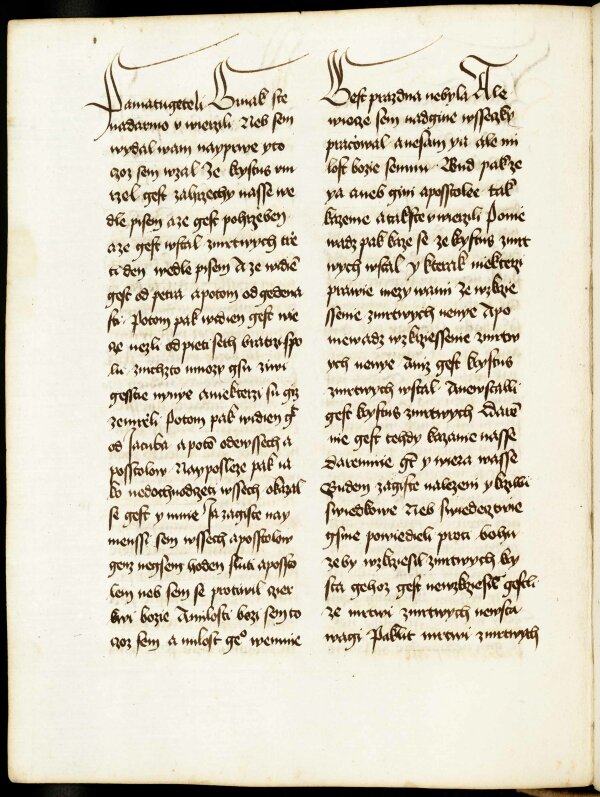 Pamatugeteli Ginak ste
nadarmo vwierzili Neb sem
wydal wam nayprwe yto
czoz sem wzal Ze krystus vm
rzel gest zahrzechy nasse we
dle pisem aze gest pohrzeben
aze gest wstal zmrtwych trze
ti den wedle pisem Aze widien
gest od petra apotom od gedena
sti Potom pak widien gest wie
cze nezli odpieti seth bratrzi spo
lu znichzto mnozy gsu ziwi
gesstie nynye aniekterzi su giz
zemrzeli Potom pak widien gt
od Jacuba apoto odewssech a
posstolow Nayposleze pak ia
ko nedochodczeti wssech okazal
se gest y mnie Ja zagiste nay
menssi sem wssech aposstolow
genz negsem hoden sluti aposso
lem neb sem se protiwil czier
kwi bozie Amilosti bozi sem to
czoz sem a milost geo wemnie
Gest prazdna nebyla Ale
wiecze sem nadgine wssechy
praczowal anesam ya ale mi
lost bozie semnu Bud pak ze
ya aneb gini aposstolee tak
kazeme atakste vwierzili Ponie
wadz pak kaze se ze krystus zmrt
wych wstal y kterak niekterzi
prawie mezy wami Ze wzkrzie
ssenie zmrtwych nenye Apo
niewadz wzkrziessenie zmrtw
ych nenye Aniz gest krystus
zmrtwych wstal Anewstalli
gest krystus zmrtwych Darem
nie gest tehdy kazanie nasse
Daremnie gt y wiera wasse
Budem zagiste nalezeni y krziwi
swiedkowe Neb swiedecztwie
gsme powiedieli proti bohu
ze by wzkrziesil zmrtwych kry
sta gehoz gest newzkrziesil gestli
ze mrtwi zmrtwych newsta
wagi Paklit mrtwi zmrtwych